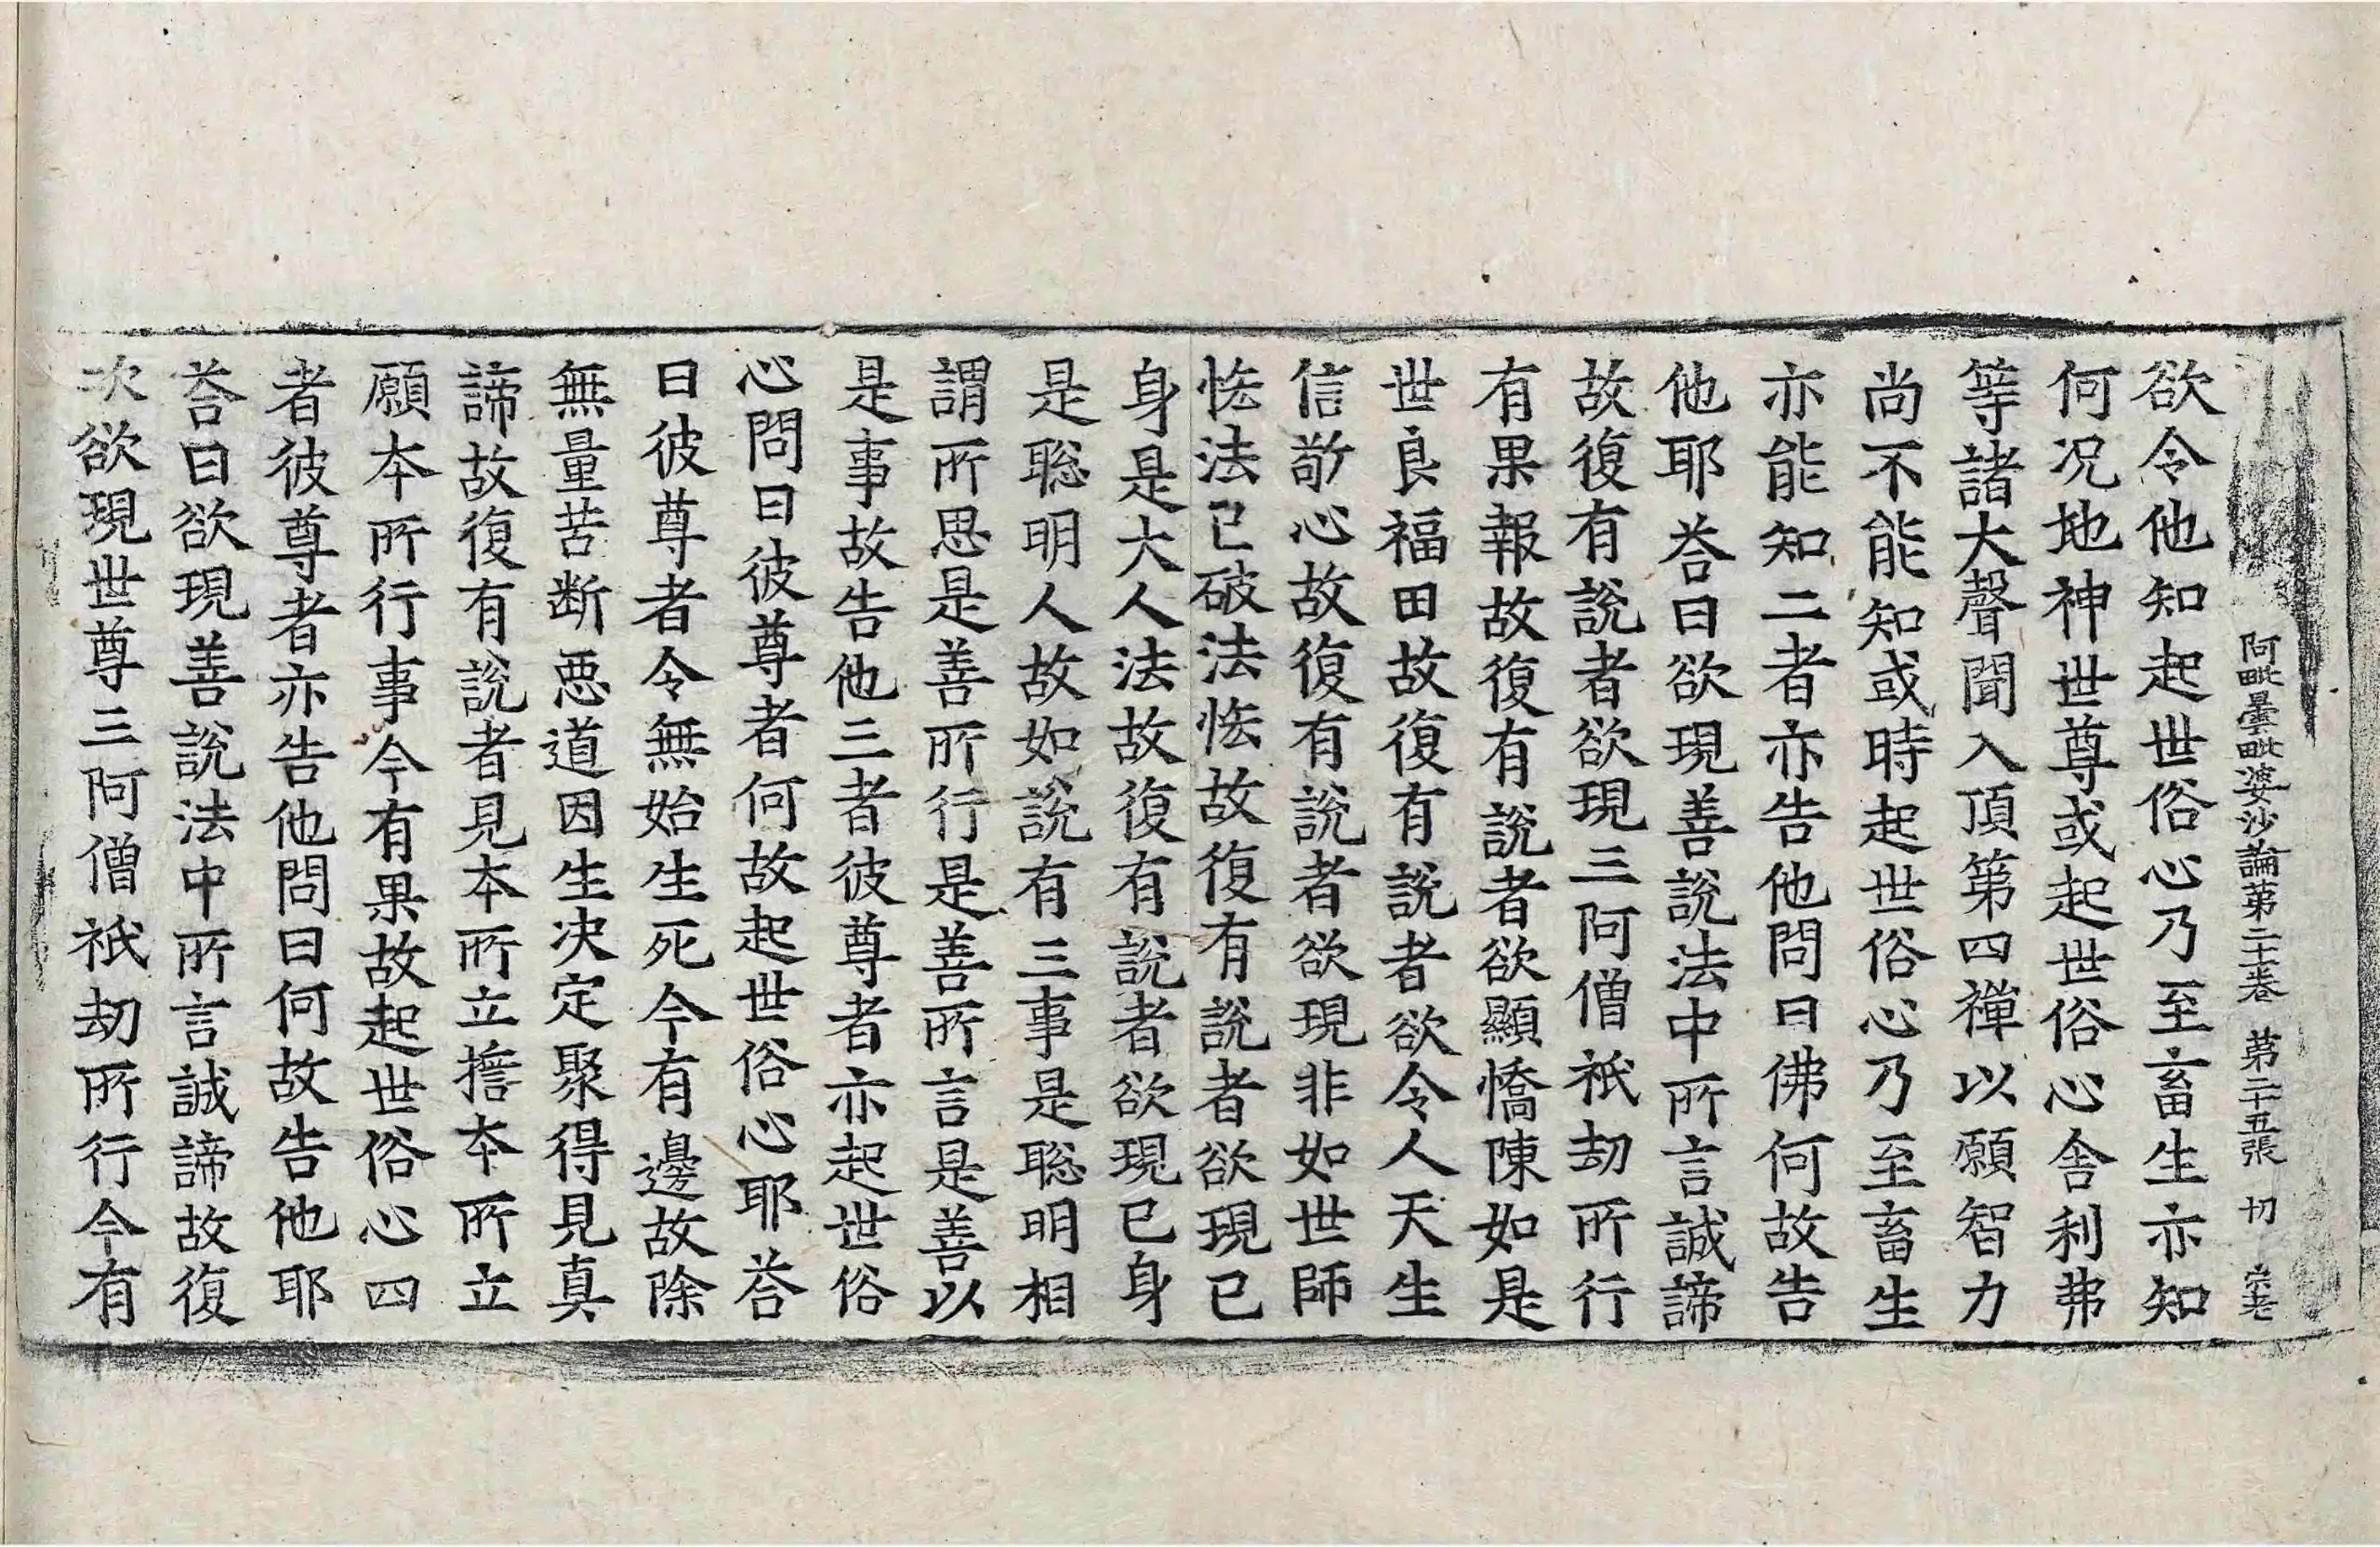 阿毗曇毗婆沙論第二十卷　第二十五張　切
欲令他知起世俗心乃至畜生亦知
何况地神世尊或起世俗心舍利弗
等諸大聲聞入頂第四禪以願智力
尚不能知或時起世俗心乃至畜生
亦能知二者亦告他問曰佛何故告
他耶荅曰欲現善說法中所言誠諦
故復有說者欲現三阿僧祇劫所行
有果報故復有說者欲顯憍陳如是
世良福田故復有說者欲令人天生
信敬心故復有說者欲現非如世師
恡法已破法恡故復有說者欲現已
身是大人法故復有說者欲現已身
是聡明人故如說有三事是聡明相
謂所思是善所行是善所言是善以
是事故告他三者彼尊者亦起世俗
心問曰彼尊者何故起世俗心耶荅
曰彼尊者令無始生死今有邊故除
無量苦断惡道因生决定聚得見真
諦故復有說者見本所立擔本所立
願本所行事今有果故起世俗心四
者彼尊者亦告他問曰何故告他耶
荅曰欲現善說法中所言誠諦故復
次欲現世尊三阿僧祇劫所行今有